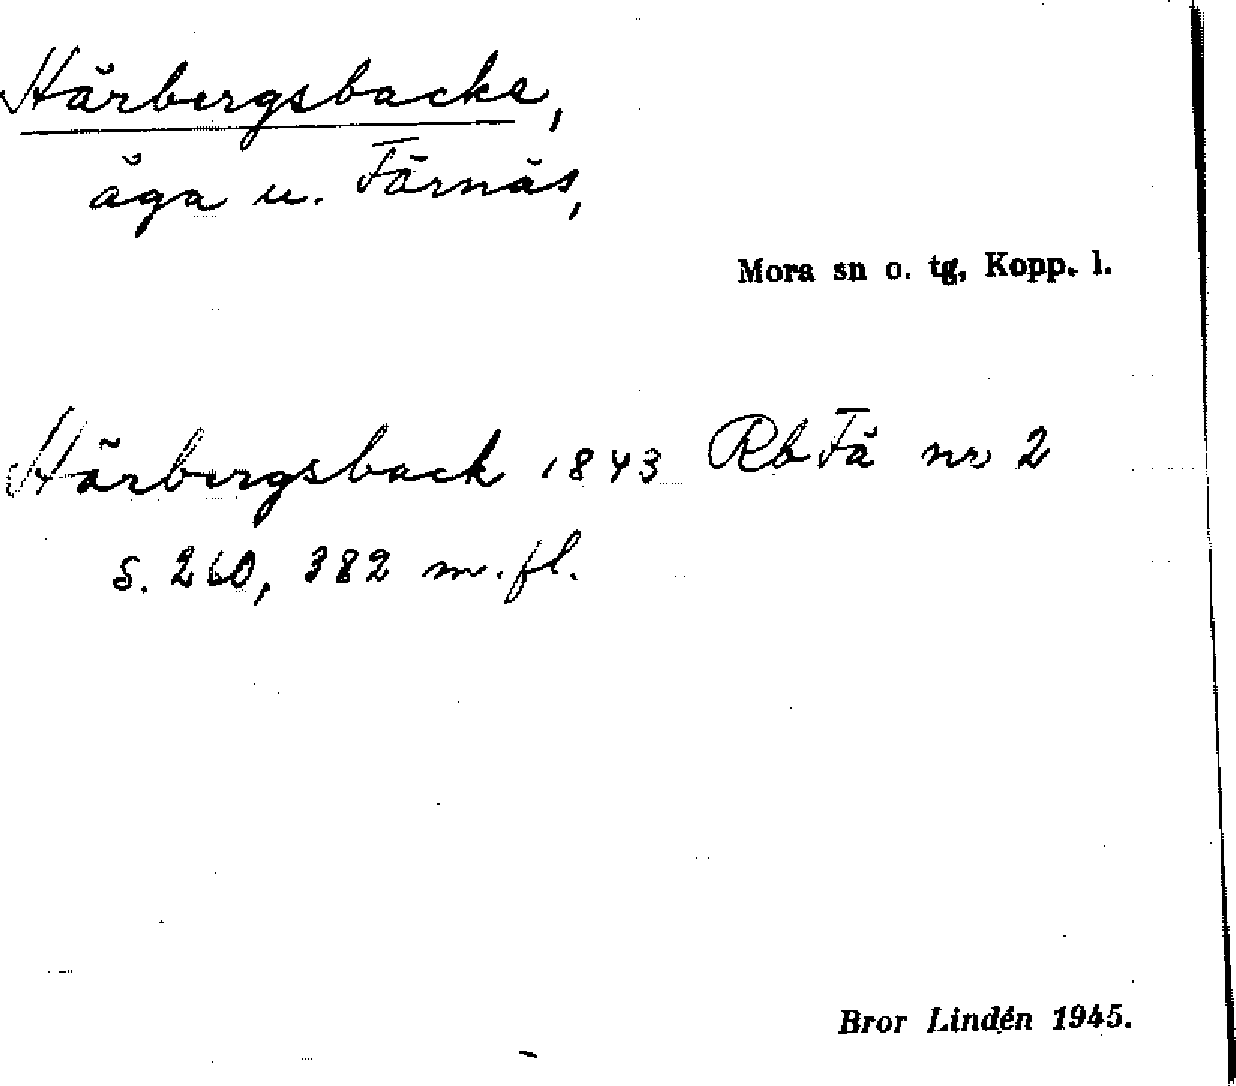 Härbergsbacke,
äga u. Färnäs,
Mora sn o. tg, Kopp. l.
Härbergsback 1843 Rb Fä nr 2
s. 260, 382 m.fl.
Bror Lindén 1945.